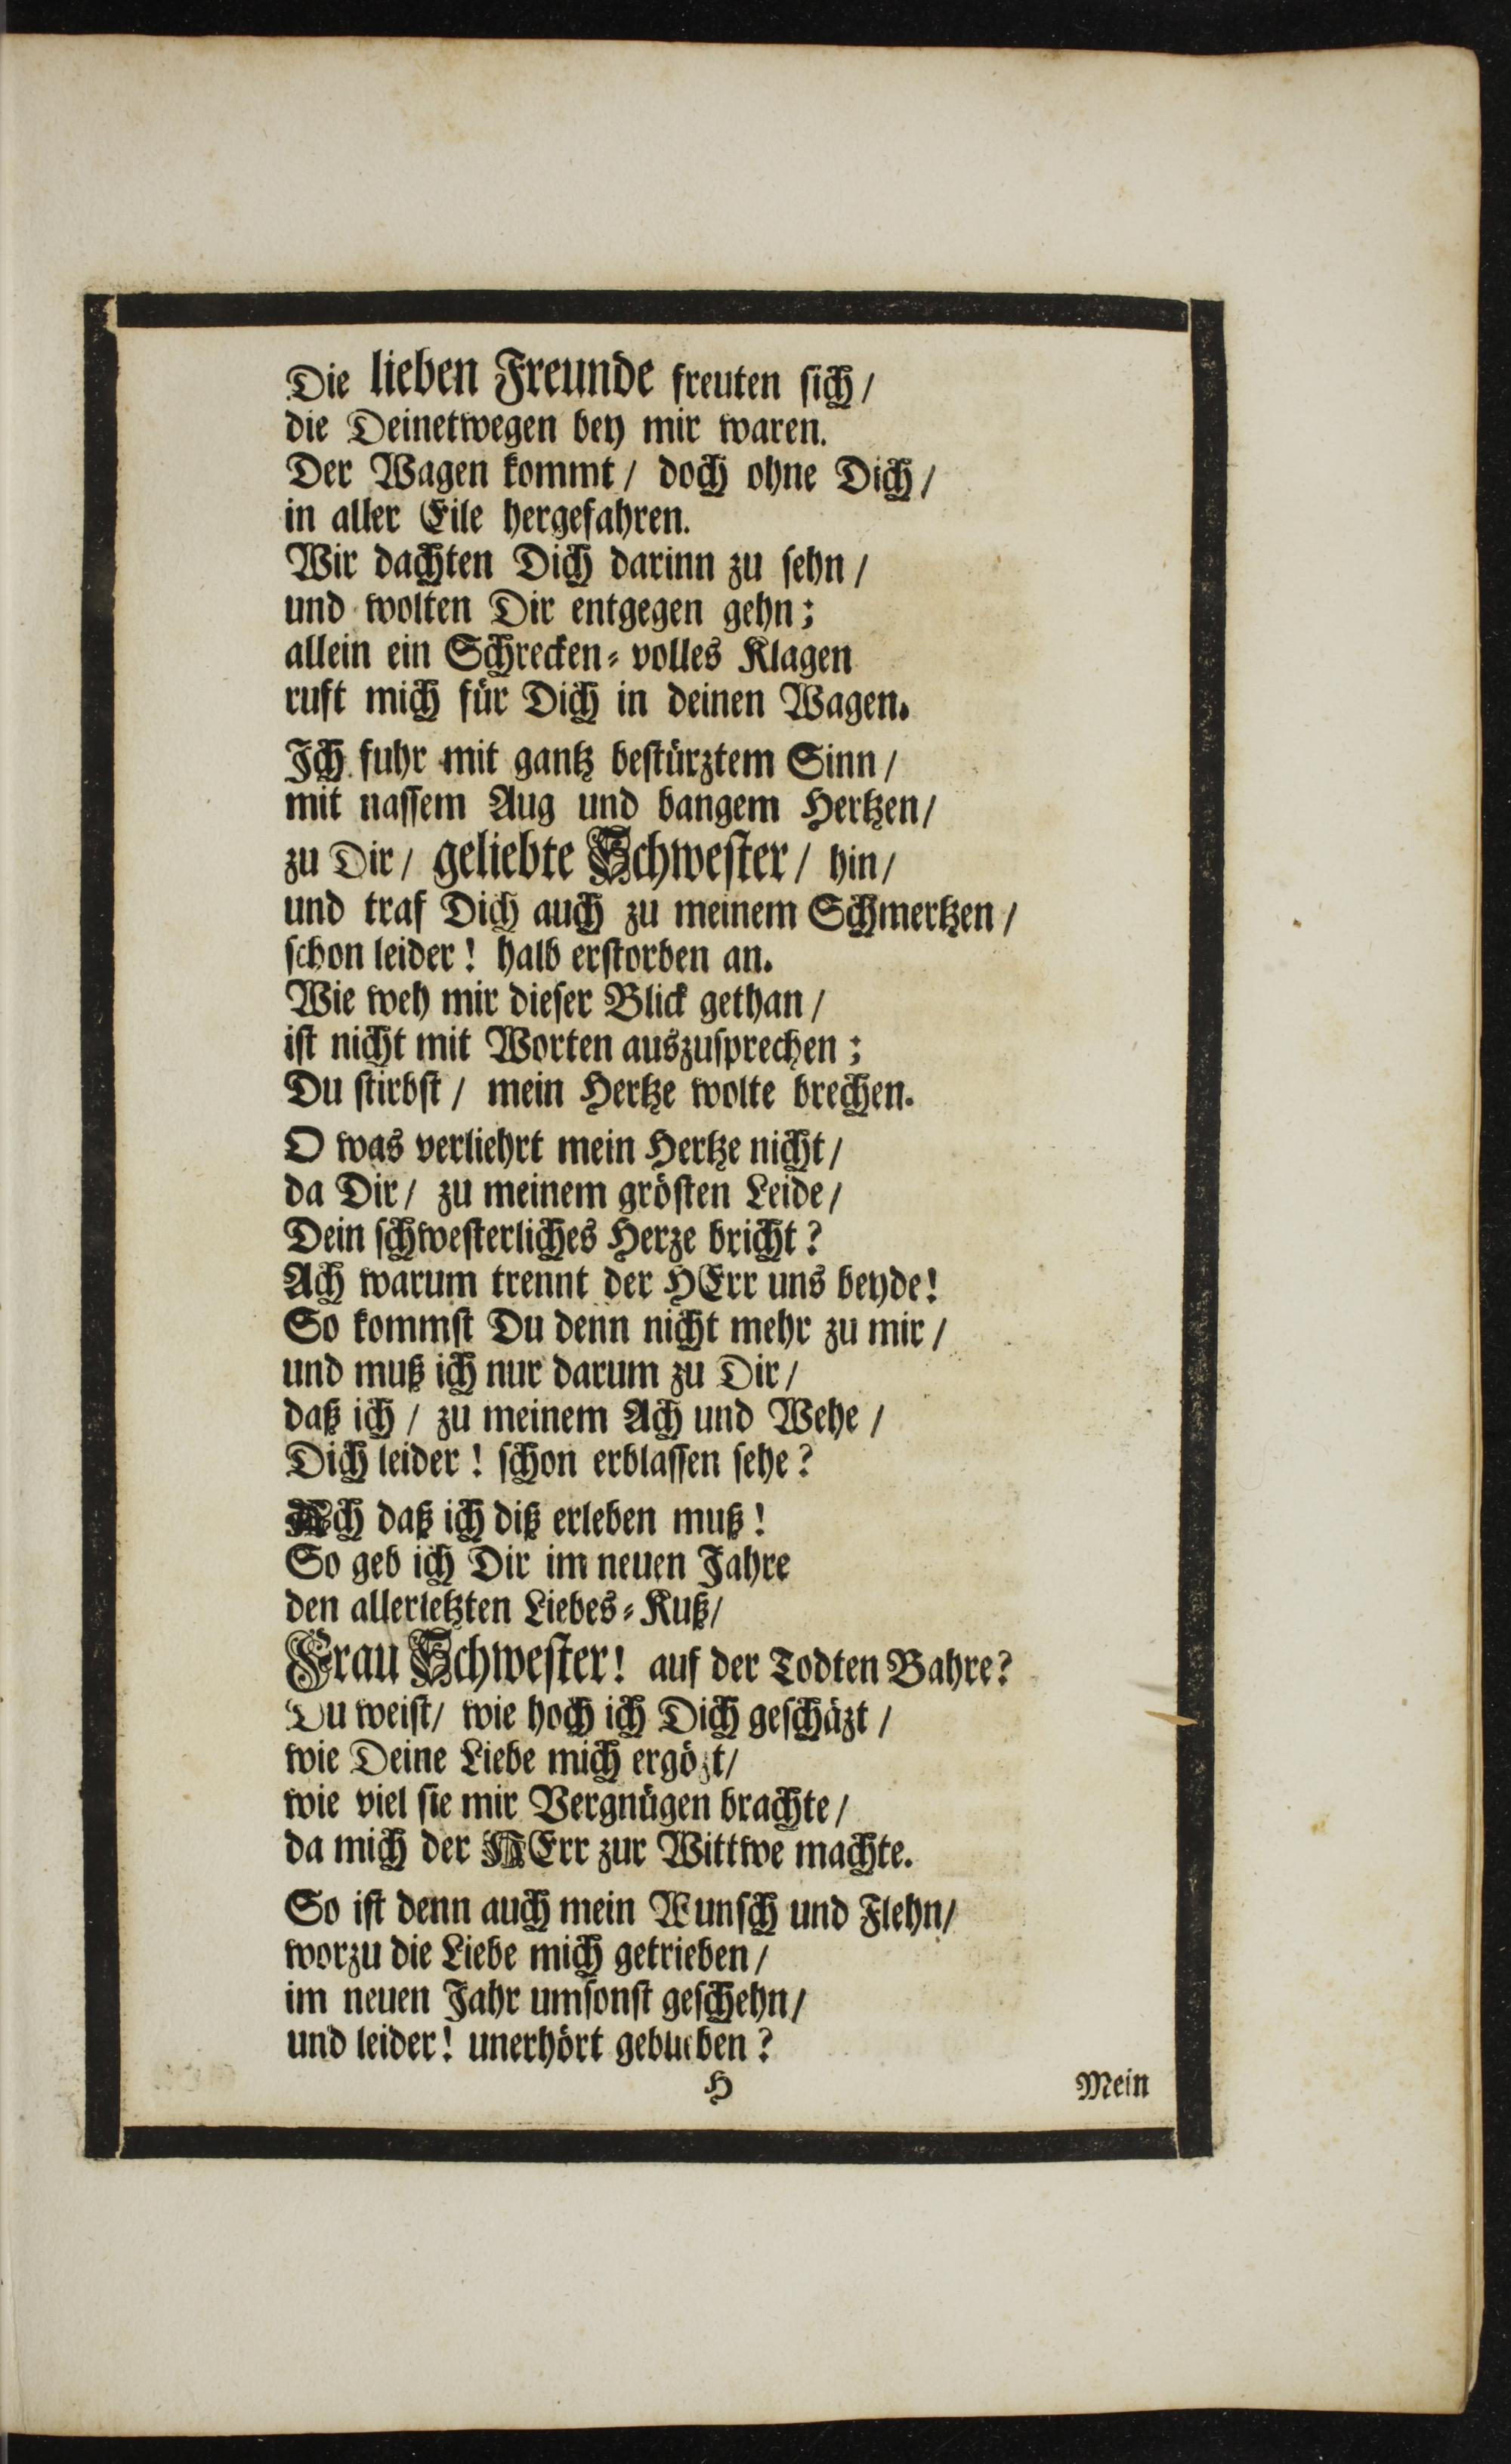 Die lieben Freunde freuten sich/
die Deinetwegen bey mir waren.
Der Wagen kommt/ doch ohne Dich/
in aller Eile hergefahren.
Wir dachten Dich darinn zu sehn/
und wolten Dir entgegen gehn;
allein ein Schrecken-volles Klagen
ruft mich für Dich in deinen Wagen.
Ich fuhr mit gantz bestürztem Sinn/
mit nassem Aug und bangem Hertzen/
zu Dir/ geliebte Schwester/ hin/
und traf Dich auch zu meinem Schmertzen/
schon leider! halb erstorben an.
Wie weh mir dieser Blick gethan/
ist nicht mit Worten auszusprechen;
Du stirbst/ mein Hertze wolte brechen.
O was verliehrt mein Hertze nicht/
da Dir/ zu meinem grösten Leide/
Dein schwesterliches Herze bricht?
Ach warum trennt der HErr uns beyde!
So kommst Du denn nicht mehr zu mir/
und muß ich nur darum zu Dir/
daß ich/ zu meinem Ach und Wehe/
Dich leider! schon erblassen sehe?
Ach daß ich diß erleben muß!
So geb ich Dir im neuen Jahre
den allerletzten Liebes-Kuß/
Frau Schwester! auf der Todten Bahre?
Du weist/ wie hoch ich Dich geschäzt/
wie Deine Liebe mich ergözt/
wie viel sie mir Vergnügen brachte/
da mich der HErr zur Wittwe machte.
So ist denn auch mein Wunsch und Flehn/
worzu die Liebe mich getrieben/
im neuen Jahr umsonst geschehn/
und leider! unerhört geblieben?
H
Mein